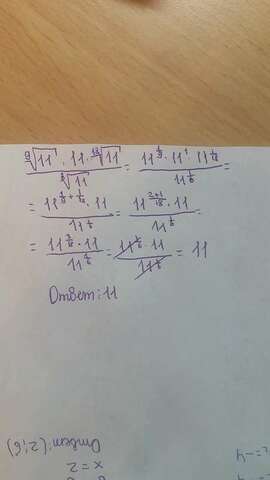 \frac{\sqrt[9]{11} \cdot 11 \cdot \sqrt[18]{11}}{\sqrt[6]{11}} = \frac{11^{\frac{1}{9}} \cdot 11^1 \cdot 11^{\frac{1}{18}}}{11^{\frac{1}{6}}} =
= \frac{11^{\frac{1}{9} + \frac{1}{18}} \cdot 11}{11^{\frac{1}{6}}} = \frac{11^{\frac{2+1}{18}} \cdot 11}{11^{\frac{1}{6}}} =
= \frac{11^{\frac{3}{18}} \cdot 11}{11^{\frac{1}{6}}} = \frac{11^{\frac{1}{6}} \cdot 11}{11^{\frac{1}{6}}} = 11
Ответ: 11
x = 2
Ответ: (2; 6)